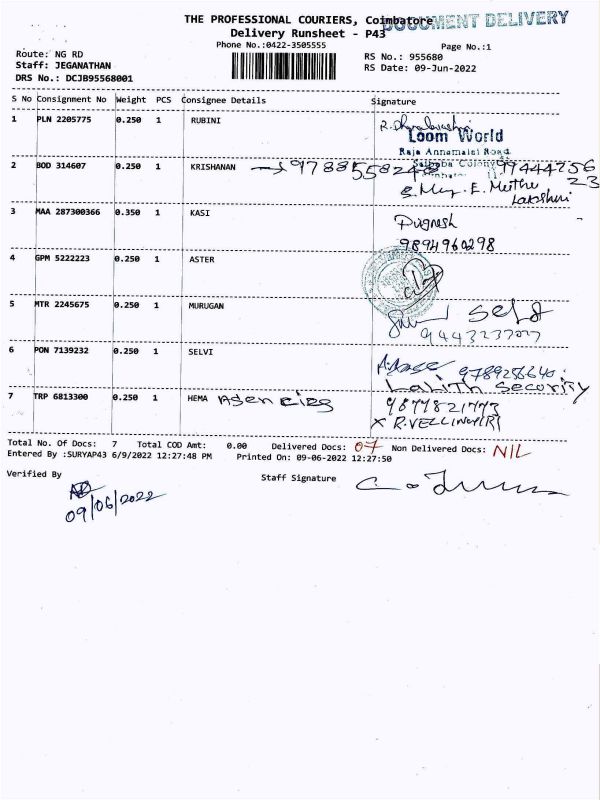 THE PROFESSIONAL COURIERS, Coimbatore
DOCUMENT DELIVERY
Delivery Runsheet - P43
Phone No.:0422-3505555
Page No.:1
Route: NG RD
RS No.: 955680
Staff: JEGANATHAN
RS Date: 09-Jun-2022
DRS No.: DCJB95568001
S No Consignment No Weight PCS Consignee Details Signature
1 PLN 2205775 0.250 1 RUBINI
Loom World
Raja Annamalai Road
Saibaba Colony
2 BOD 314607 0.250 1 KRISHANAN
E. Muthu
Lakshmi
3 MAA 287300366 0.350 1 KASI
Pugnesh
9894960298
4 GPM 5222223 0.250 1 ASTER
5 MTR 2245675 0.250 1 MURUGAN
Self
9443237027
6 PON 7139232 0.250 1 SELVI
9789286640
Lalith Security
7 TRP 6813300 0.250 1 HEMA Agencies
9877821773
X R.VELLINGIRI
Total No. Of Docs: 7 Total COD Amt: 0.00 Delivered Docs: 07 Non Delivered Docs: NIL
Entered By :SURYAP43 6/9/2022 12:27:48 PM Printed On: 09-06-2022 12:27:50
Verified By
Staff Signature
09/06/2022